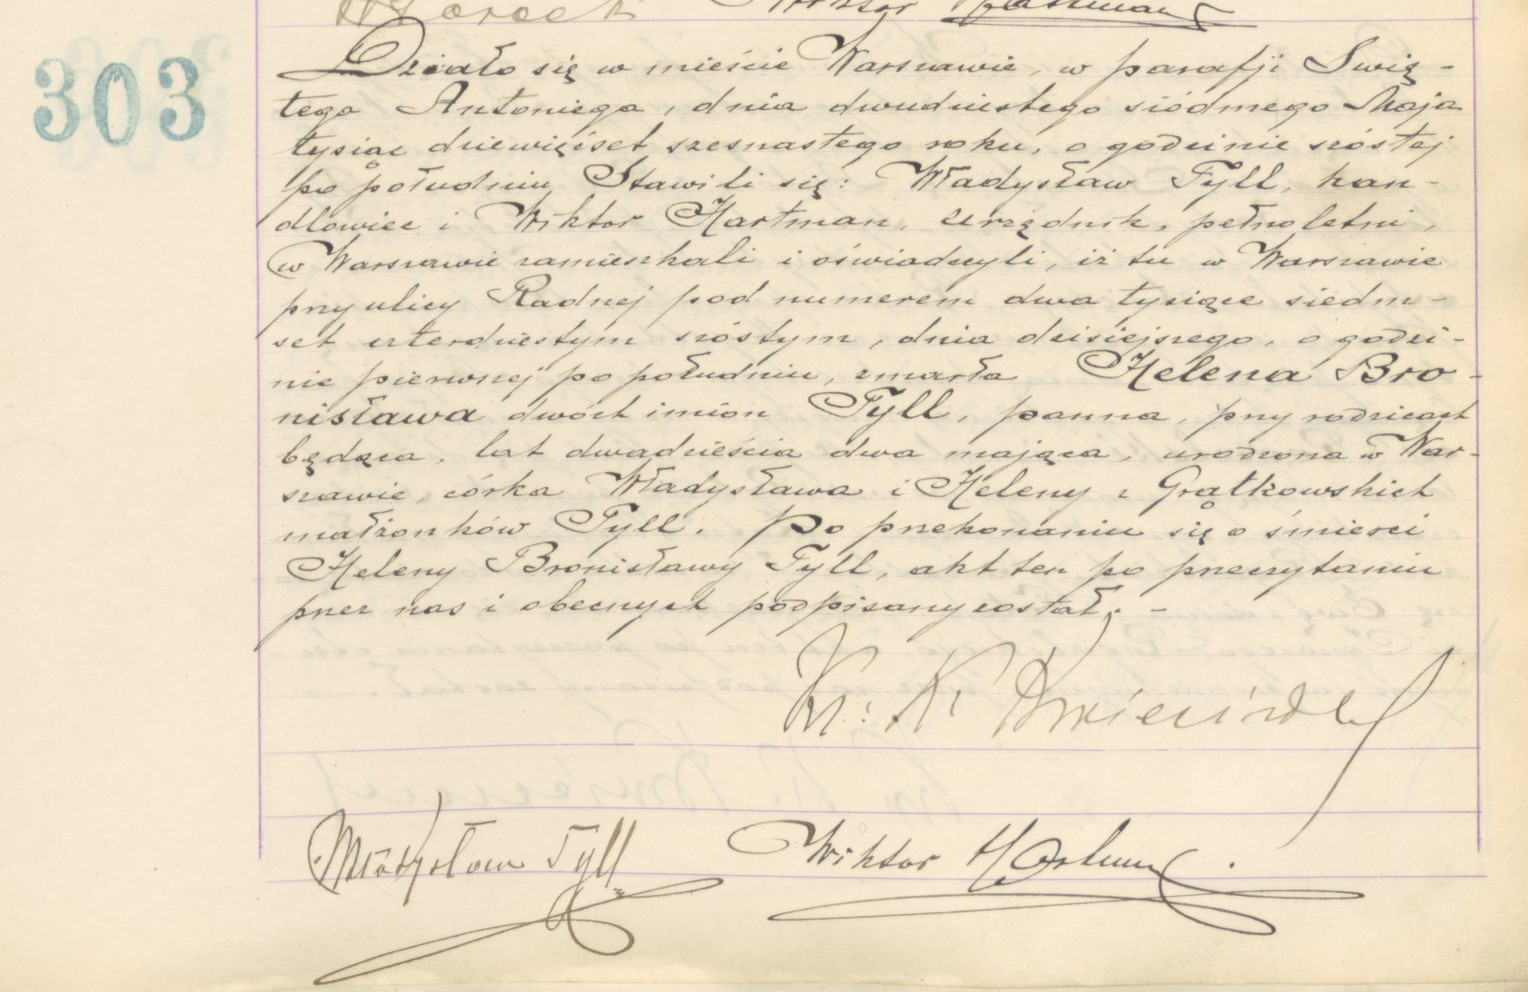 Wiktor Hartman
303
Działo się w mieście Warszawie, w parafji Świę-
tego Antoniego, dnia dwudziestego siódmego Maja
tysiąc dziewięćset szesnastego roku, o godzinie szóstej
po południu. Stawili się: Władysław Tyll, han-
dlowiec i Wiktor Hartman, urzędnik, pełnoletni,
w Warszawie zamieszkali i oświadczyli, iż tu w Warszawie
przy ulicy Radnej pod numerem dwa tysiące siedm-
set czterdziestym szóstym, dnia dzisiejszego, o godzi-
nie pierwszej po południu, zmarła Helena Bro-
nisława dwóch imion Tyll, panna, przy rodzicach
będąca, lat dwadzieścia dwa mająca, urodzona w War-
szawie, córka Władysława i Heleny z Grątkowskich
małżonków Tyll. Po przekonaniu się o śmierci
Heleny Bronisławy Tyll, akt ten po przeczytaniu
przez nas i obecnych podpisany został. -
Władysław Tyll Wiktor Hartman.